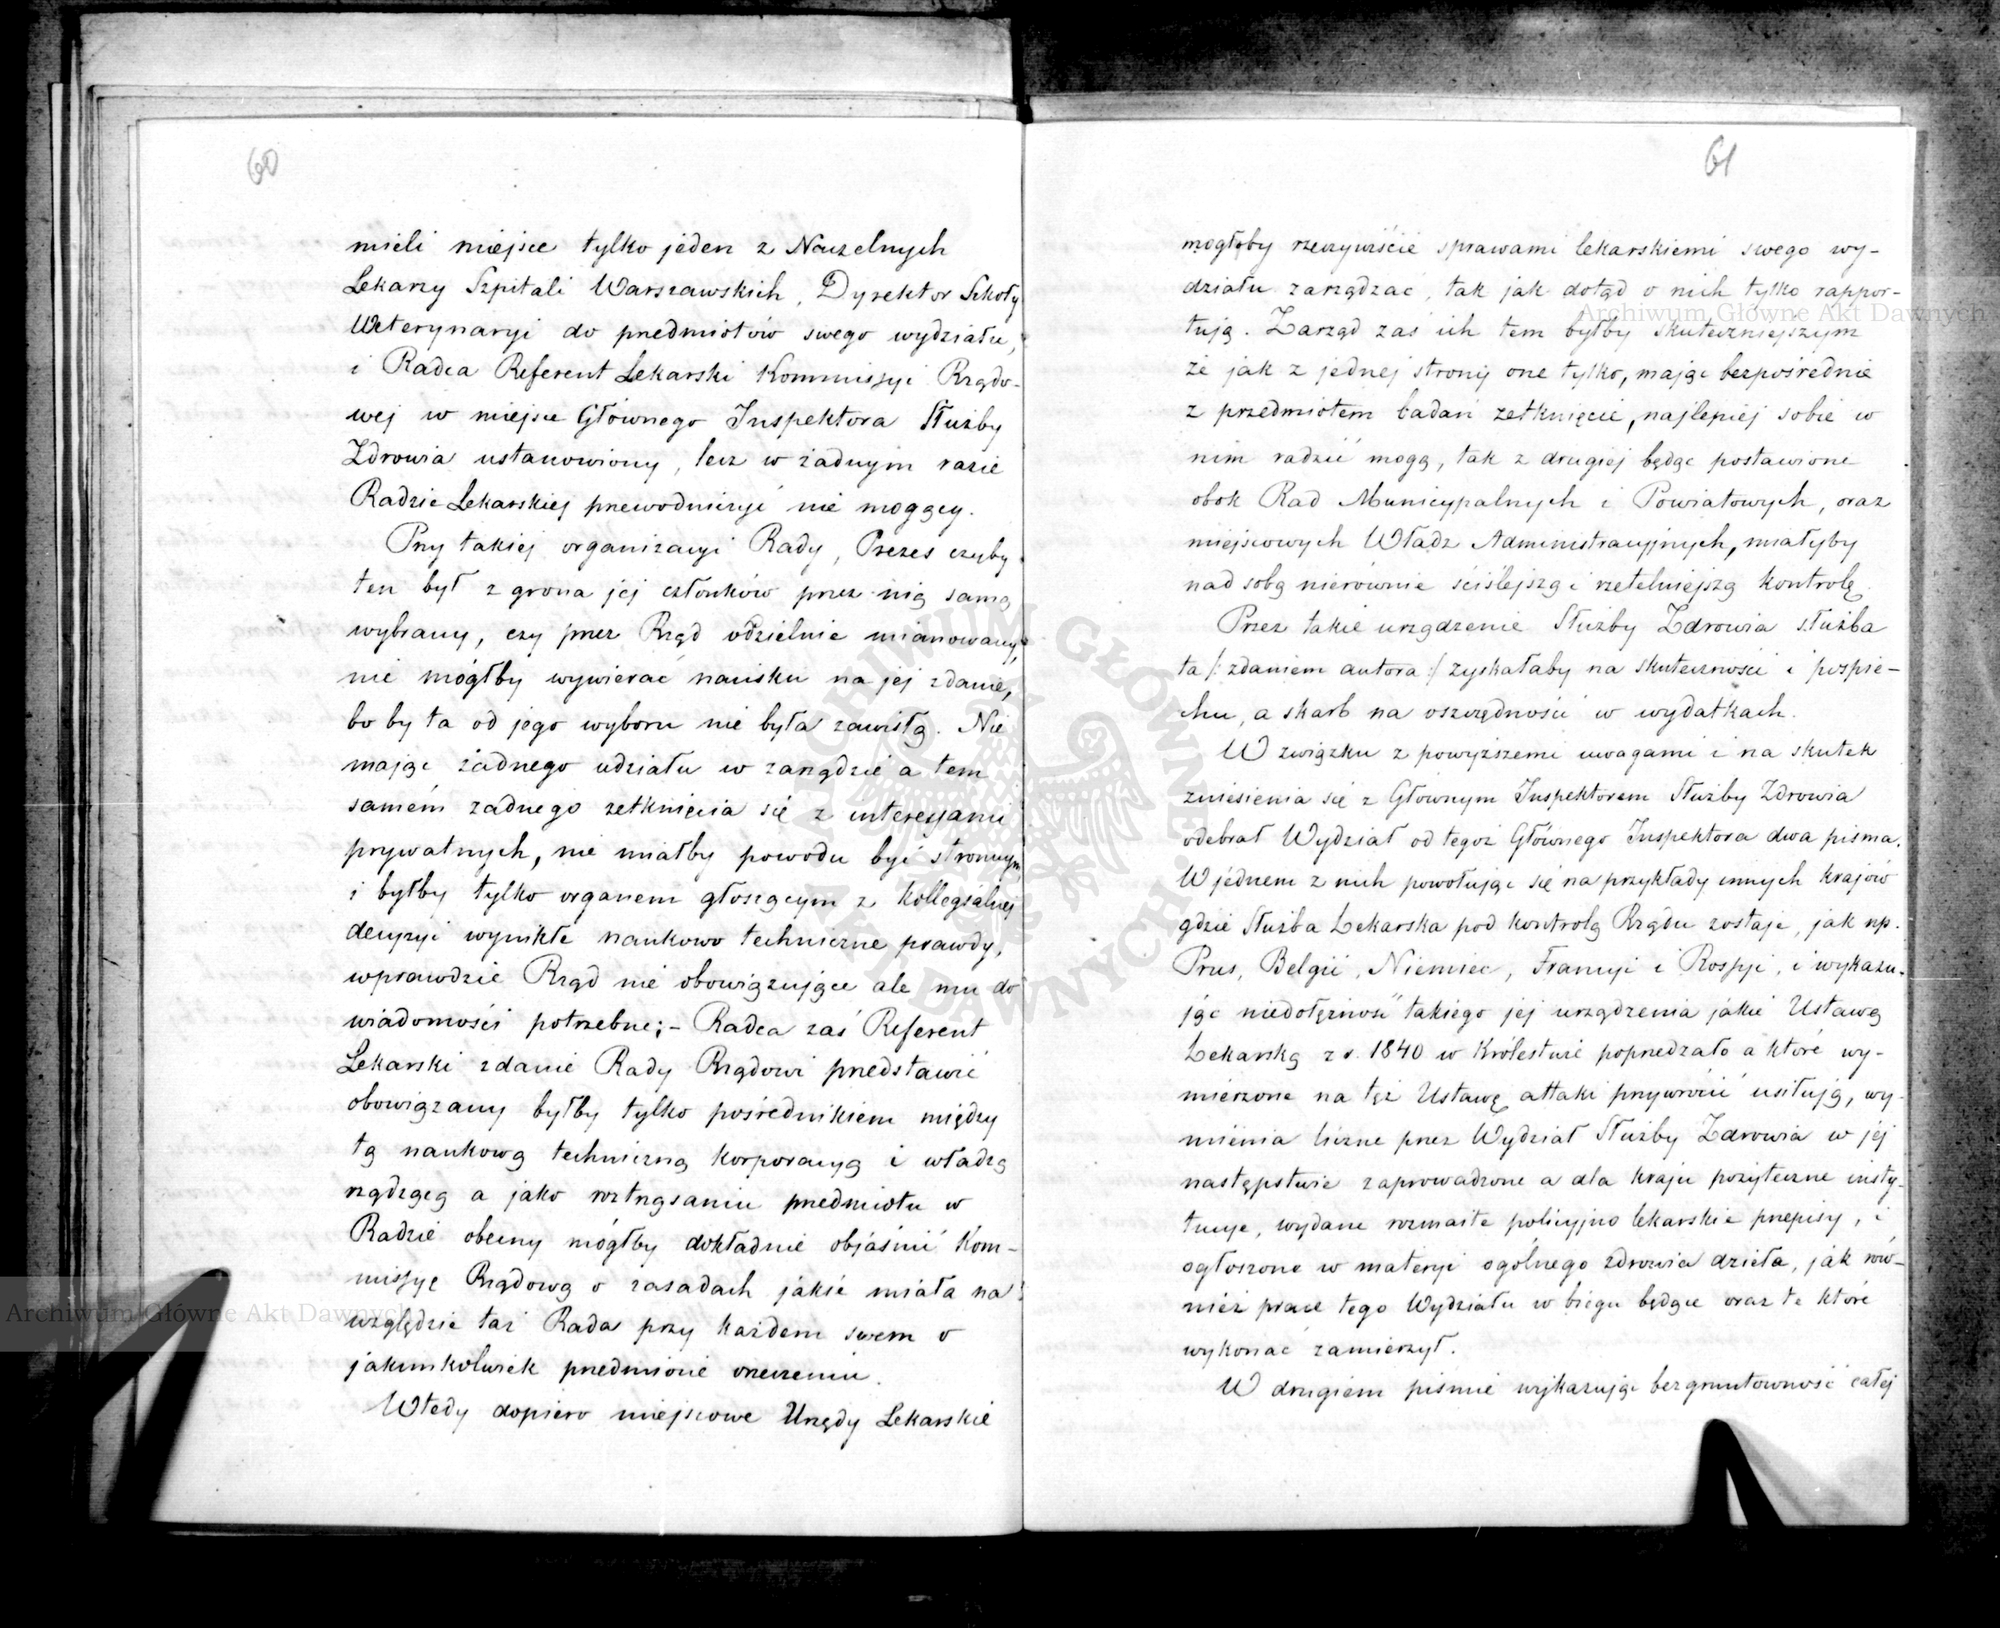 60
mieli miejsce tylko jeden z Naczelnych
Lekarzy Szpitali Warszawskich, Dyrektor Szkoły
Weterynaryi do przedmiotów swego wydziału,
i Radca Referent Lekarski Kommissyi Rządo-
wej w miejsce Głównego Inspektora Służby
Zdrowia ustanowiony, lecz w żadnym razie
Radzie Lekarskiej przewodniczyć nie mogący.
Przy takiej organizacyi Rady, Prezes czyby
ten był z grona jej członków przez nią samą
wybrany, czy przez Rząd oddzielnie mianowany,
nie mógłby wywierać nacisku na jej zdanie,
bo by ta od jego wyboru nie była zawisłą. Nie
mając żadnego udziału w zarządzie a tem
samém żadnego zetknięcia się z interessami
prywatnych, nie miałby powodu być stronnym
i byłby tylko organem głoszącym z kollegialnej
decyzyi wynikłe naukowo techniczne prawdy,
wprawdzie Rząd nie obowiązujące ale mu do
wiadomości potrzebne; – Radca zaś Referent
Lekarski zdanie Rady Rządowi przedstawić
obowiązany byłby tylko pośrednikiem między
tą naukową techniczną korporacyą i władzą
rządzącą a jako roztrząsaniu przedmiotu w
Radzie obecny mógłby dokładnie objaśnić Kom-
missyę Rządową o zasadach jakie miała na
względzie taż Rada przy każdem swem o
jakimkolwiek przedmiocie orzeczeniu.
Wtedy dopiero miejscowe Urzędy Lekarskie
61
mogłyby rzeczywiście sprawami lekarskiemi swego wy-
działu zarządzać, tak jak dotąd o nich tylko rappor-
tują. Zarząd zaś ich tem byłby skuteczniejszym
że jak z jednej strony one tylko, mając bezpośrednie
z przedmiotem badań zetknięcie, najlepiej sobie w
nim radzić mogą, tak z drugiej będąc postawione
obok Rad Municypalnych i Powiatowych, oraz
miejscowych Władz Administracyjnych, miałyby
nad sobą nierównie ściślejszą i rzetelniejszą kontrolę.
Przez takie urządzenie Służby Zdrowia służba
ta /: zdaniem autora :/ zyskałaby na skuteczności i pospie-
chu, a skarb na oszczędności w wydatkach.
W związku z powyższemi uwagami i na skutek
zniesienia się z Głównym Inspektorem Służby Zdrowia
odebrał Wydział od tegoż Głównego Inspektora dwa pisma.
W jédnem z nich powołując się na przykłady innych krajów
gdzie Służba Lekarska pod kontrolą Rządu zostaje, jak np.
Prus, Belgii, Niemiec, Francyi i Rossyi, i wykazu-
jąc niedołężność takiego jej urządzenia jakie Ustawę
Lekarską z r. 1840 w Królestwie poprzedzało a które wy-
mierzone na też Ustawę attaki przywrócić usiłują, wy-
mienia liczne przez Wydział Służby Zdrowia w jej
następstwie zaprowadzone a dla kraju pożyteczne insty-
tucye, wydane rozmaite policyjno lekarskie przepisy, i
ogłoszone w materyi ogólnego zdrowia dzieła, jak rów-
nież prace tego Wydziału w biegu będące oraz te które
wykonać zamierzył.
W drugiem piśmie wykazując bezgruntowność całej
Archiwum Główne Akt Dawnych
Archiwum Główne Akt Dawnych
ARCHIWUM GŁÓWNE AKT DAWNYCH